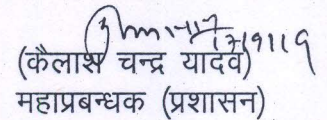 17/9/19
(कैलाश चन्द्र यादव)
महाप्रबन्धक (प्रशासन)